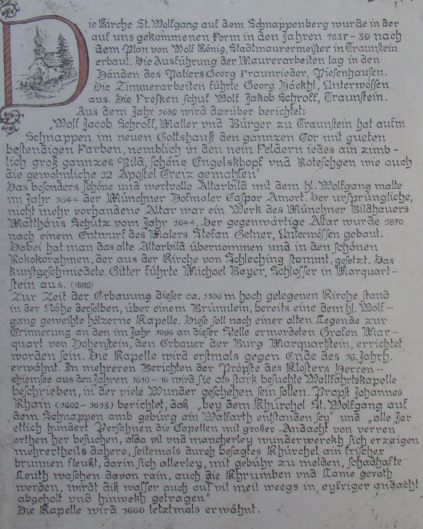 Die Kirche St. Wolfgang auf dem Schnappenberg wurde in der
auf uns gekommenen Form in den Jahren 1637-39 nach
dem Plan von Wolf König, Stadtmaurermeister in Traunstein
erbaut. Die Ausführung der Maurerarbeiten lag in den
Händen des Paliers Georg Fraunrieder, Piesenhausen.
Die Zimmerarbeiten führte Georg Häckhl, Unterwössen
aus. Die Fresken schuf Wolf Jakob Schroff, Traunstein.
Aus dem Jahr 1639 wird darüber berichtet:
"Wolf Jacob Schroff, Maller und Bürger zu Traunstein hat aufm
Schnappen im neuen Gottshauß den ganntzen Cor mit gueten
bestendigen Farben, nemblich in den neün Feldern iedes ain zimb-
lich groß ganntzes Bild, schöne Engelskhopf und Roteschgen wie auch
die gewohnliche 12 Apostel Creiz gemahlen"
Das besonders schöne und wertvolle Altarbild mit dem hl. Wolfgang malte
im Jahr 1644 der Münchner Hofmaler Caspar Amort. Der ursprüngliche,
nicht mehr vorhandene Altar war ein Werk des Münchner Bildhauers
Matthäus Schütz vom Jahr 1644. Der gegenwärtige Altar wurde 1870
nach einem Entwurf des Malers Stefan Getner, Unterwössen gebaut.
Dabei hat man das alte Altarbild übernommen und in den schönen
Rokokorahmen, der aus der Kirche von Schleching stammt, gesetzt. Das
kunstgeschmiedete Gitter führte Michael Boyer, Schlosser in Marquart-
stein aus.
Zur Zeit der Erbauung dieser ca. 1100 m hoch gelegenen Kirche stand
in der Nähe derselben, über einem Brünnlein, bereits eine dem hl. Wolf-
gang geweihte hölzerne Kapelle. Diese soll nach einer alten Legende zur
Erinnerung an den im Jahr an dieser Stelle ermordeten Grafen Mar-
quart von Hohenstein, den Erbauer der Burg Marquartstein, errichtet
worden sein. Die Kapelle wird erstmals gegen Ende des 16. Jahrh.
erwähnt. In mehreren Berichten der Pröpste des Klosters Herren-
chiemsee aus den Jahren 1610-16 wird sie als stark besuchte Wallfahrtskapelle
beschrieben, in der viele Wunder geschehen sein sollen. Propst Johannes
Khain berichtet, daß "bey dem Khürchel St. Wolfgang auf
dem Schnappen amb gebürg ain Walfarth enstanden sey" und "alle Jar
etlich hundert Persohnen die Capellen mit großer Andacht von verren
orthen her besuchen, alda vil und mancherley wunderwerckh sich erzaigen
mehrerthails dahero, seitemals durch besagtes Khürchel ain frischer
brunnen fleußt, darin sich allerley, mit gebühr zu melden, schadhafte
Leuth waschen davon rain, auch die Khrumben und Lame gerath
werden, wirdt diß wasser auch auf vil meil weegs in eyfriger andacht
abgeholt und hinwekh getragen"
Die Kapelle wird 1660 letztmals erwähnt.